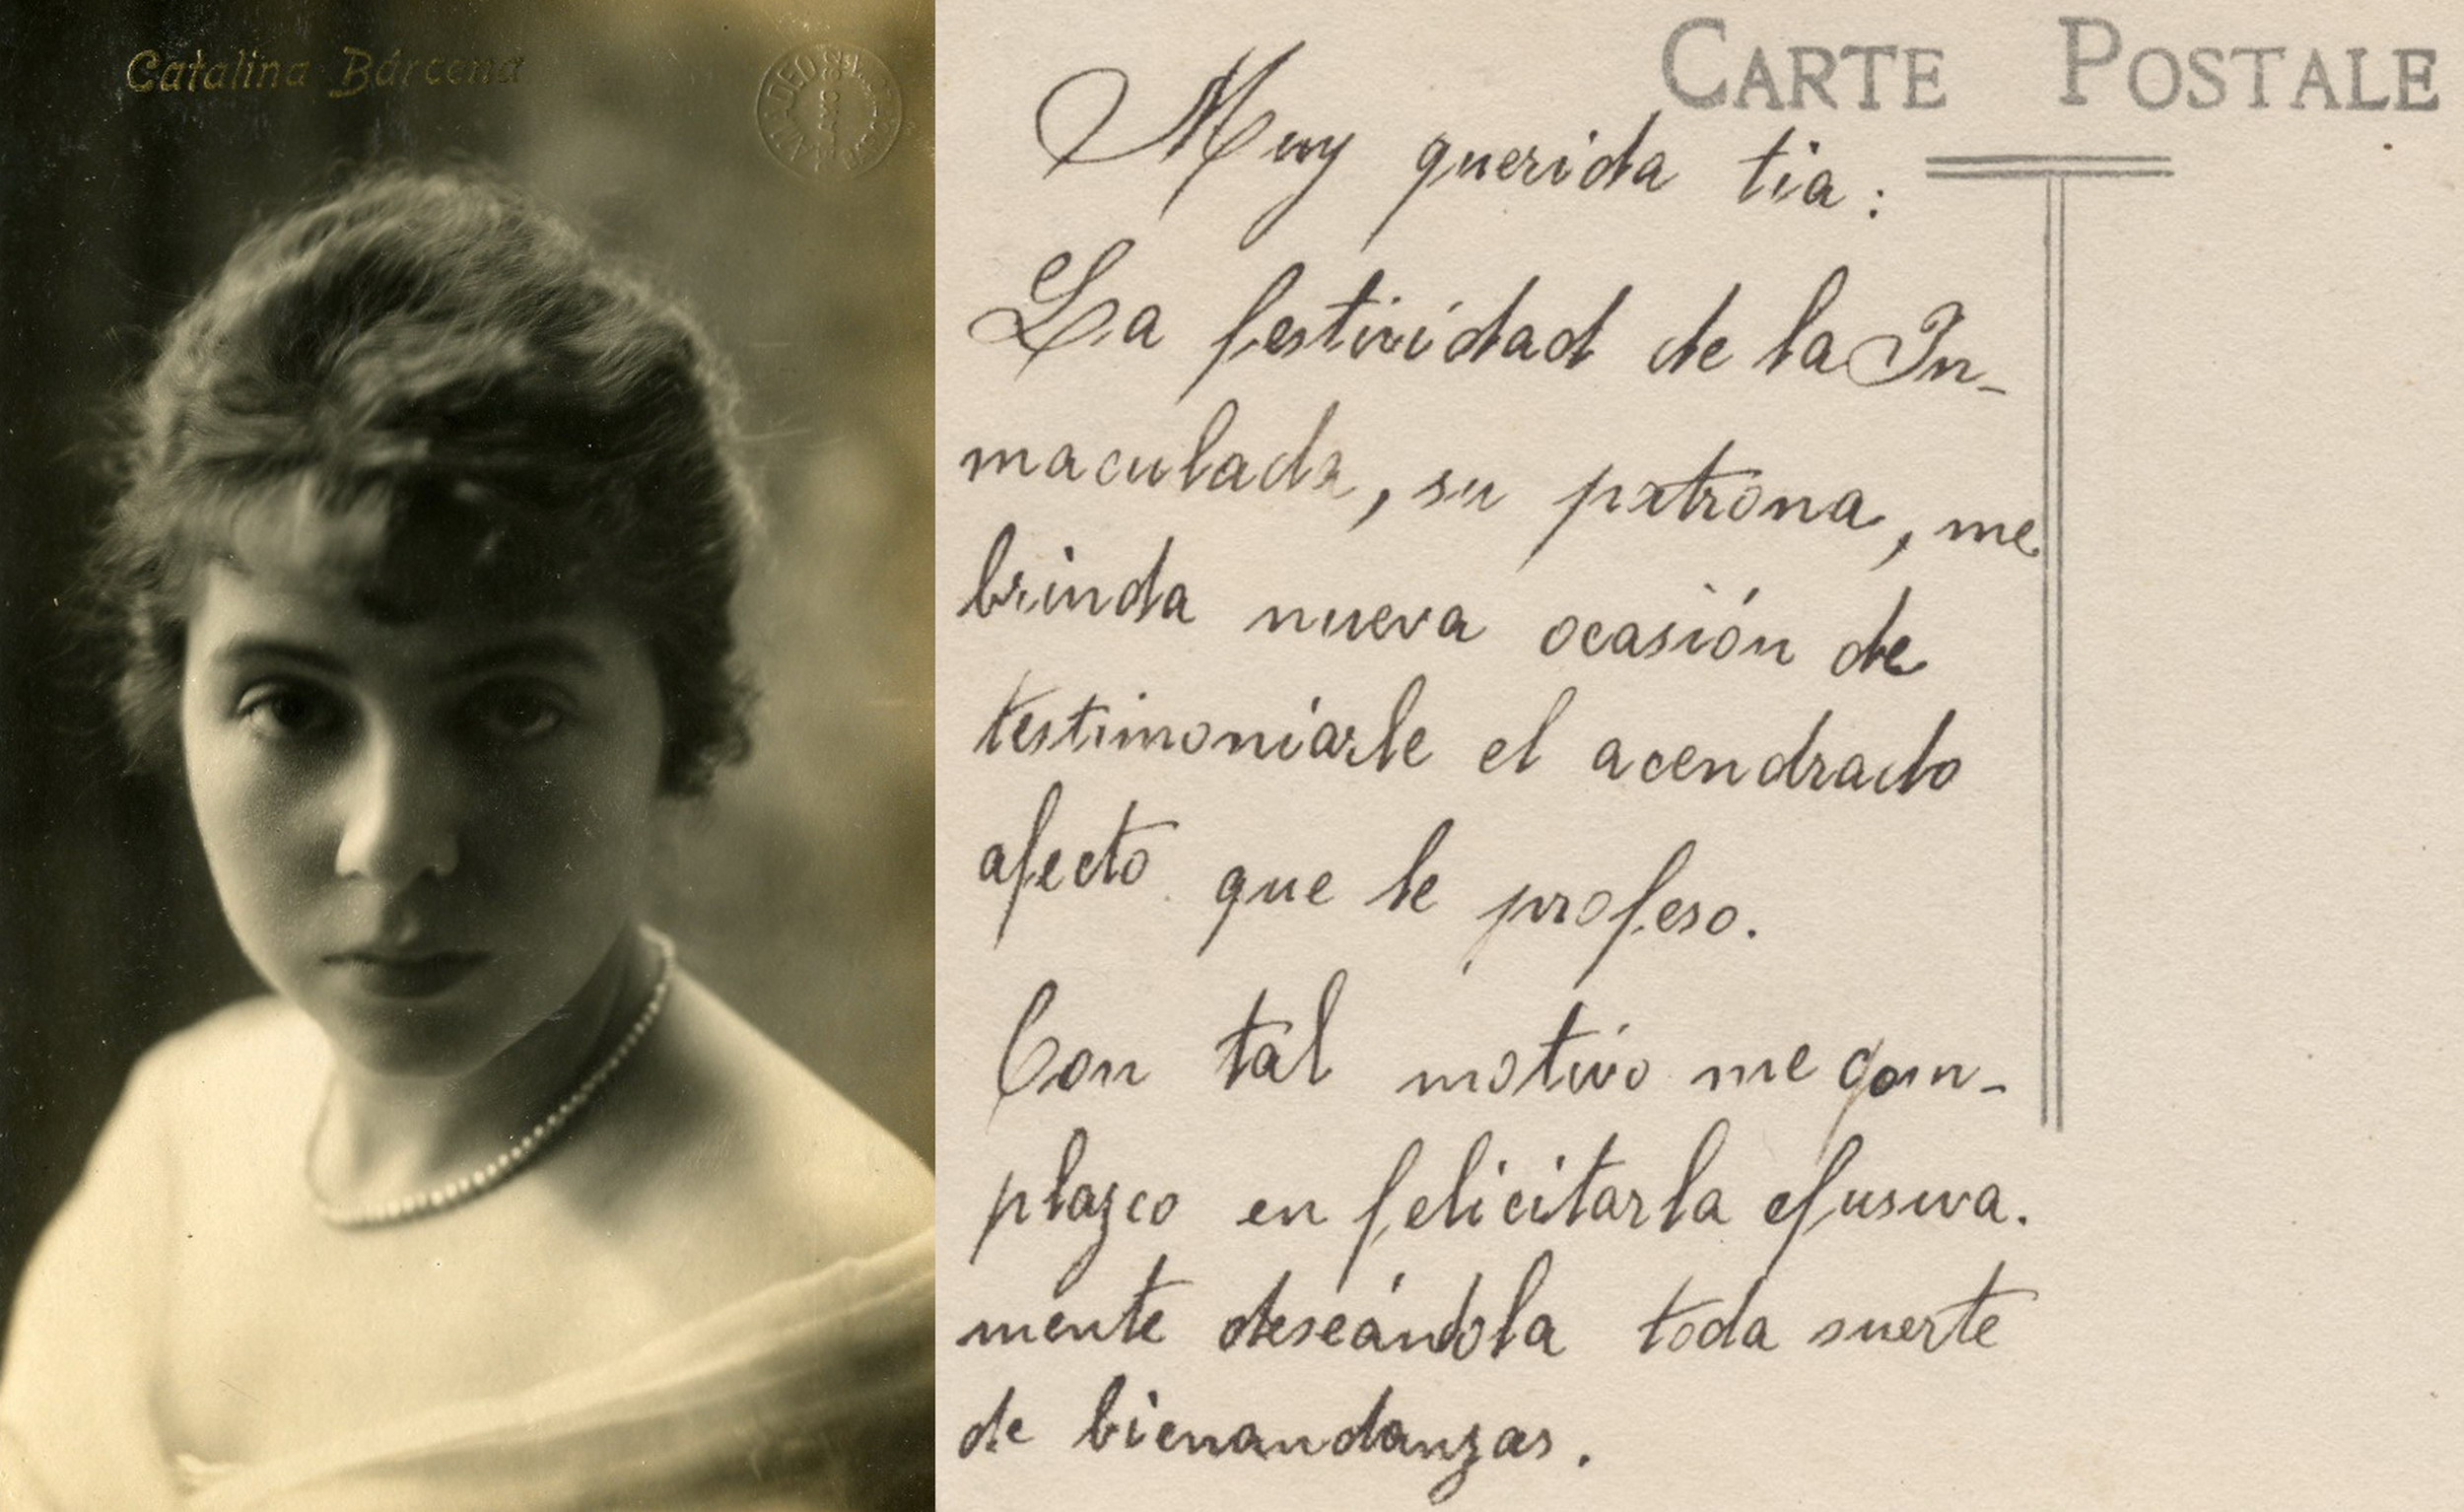 Catalina Bárcena
CARTE POSTALE
Muy querida tia:
La festividad de la In-
maculada, su patrona, me
brinda nueva ocasión de
testimoniarle el acendrado
afecto que le profeso.
Con tal motivo me com-
plazco en felicitarla efusiva.
mente deseándola toda suerte
de bienandanzas.